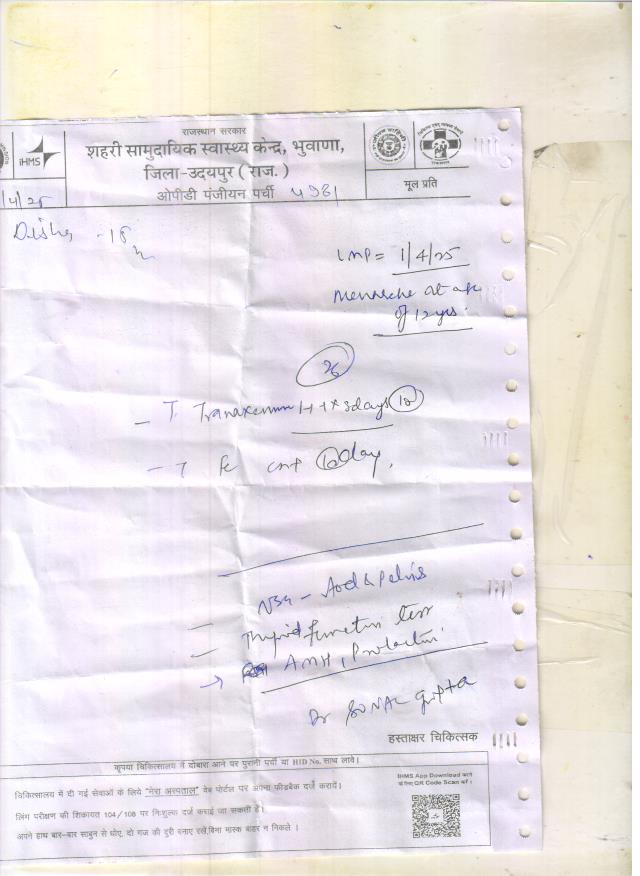 राजस्थान सरकार
शहरी सामुदायिक स्वास्थ्य केन्द्र, भुवाणा,
जिला-उदयपुर ( राज. )
ओपीडी पंजीयन पर्ची 4981
iHMS
मूल प्रति
/4/25
Disha - 18
LMP = 1/4/25
Menarche at age
of 12 yrs.
- T. 1-1-1 x 3days
- T Fe day
USG - Abd & Pelvis
- Thyroid function test
→ AMH, Prolactin
Dr Sonal Gupta
हस्ताक्षर चिकित्सक
कृपया चिकित्सालय में दोबारा आने पर पुरानी पर्ची या HID No. साथ लावे।
चिकित्सालय में दी गई सेवाओं के लिए "मेरा अस्पताल" वेब पोर्टल पर अपना फीडबैक दर्ज करावें।
लिंग परीक्षण की शिकायत 104/108 पर निःशुल्क दर्ज कराई जा सकती है।
अपने हाथ बार-बार साबुन से धोए, दो गज की दुरी बनाए रखें,बिना मास्क बाहर न निकले ।
IHMS App Download करने
के लिए QR Code Scan करें।